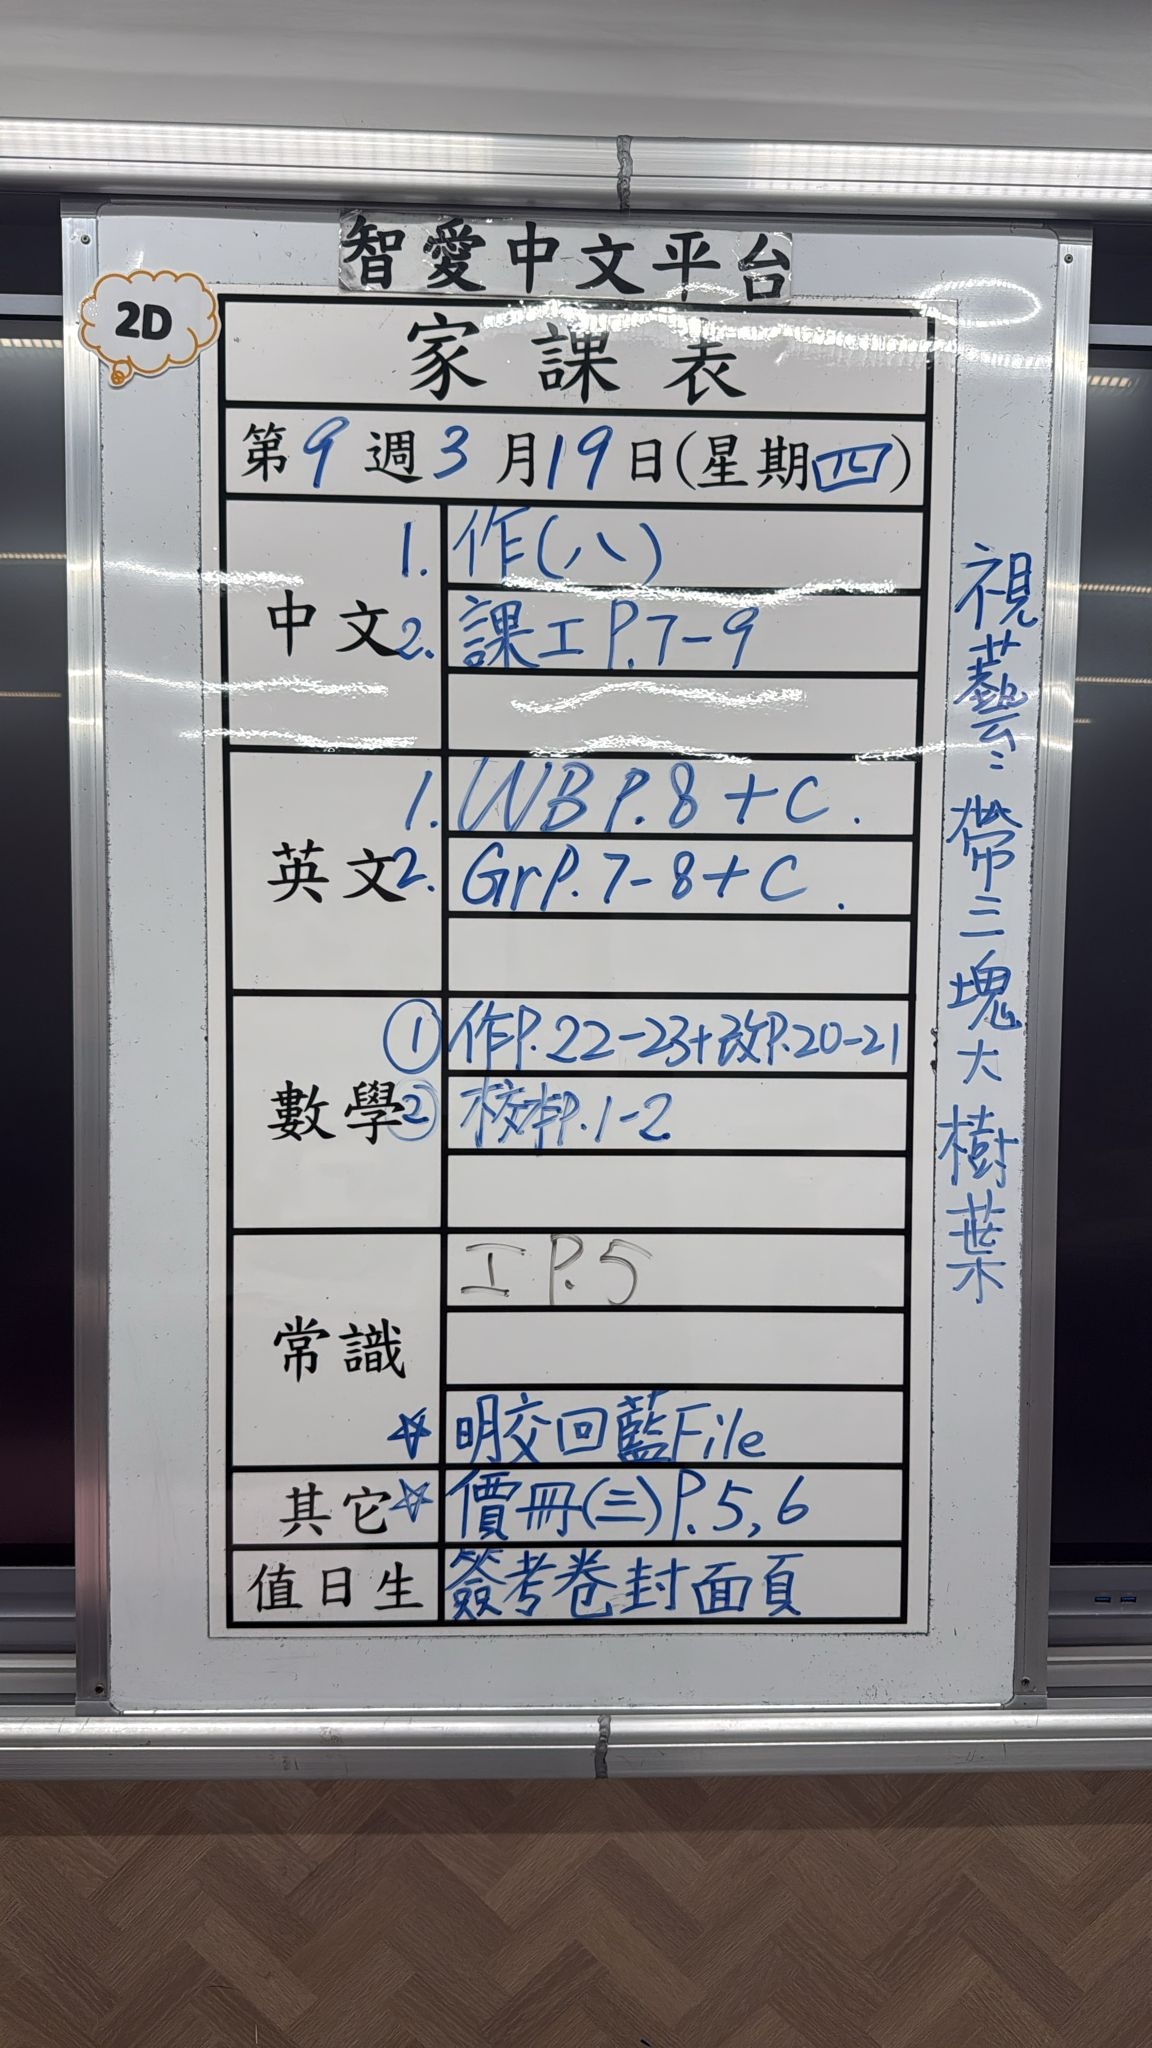 智愛中文平台
2D
家課表
第9週3月19日(星期四)
中文
1. 作(八)
2. 課工P.7-9
英文
1. WB P.8+C.
2. Gr P.7-8+C.
數學
① 作P.22-23+改P.20-21
② 校本P.1-2
常識
工 P.5
☆ 明交回藍File
其它
☆ 價冊(三)P.5,6
值日生
簽考卷封面頁
視藝:帶三塊大樹葉